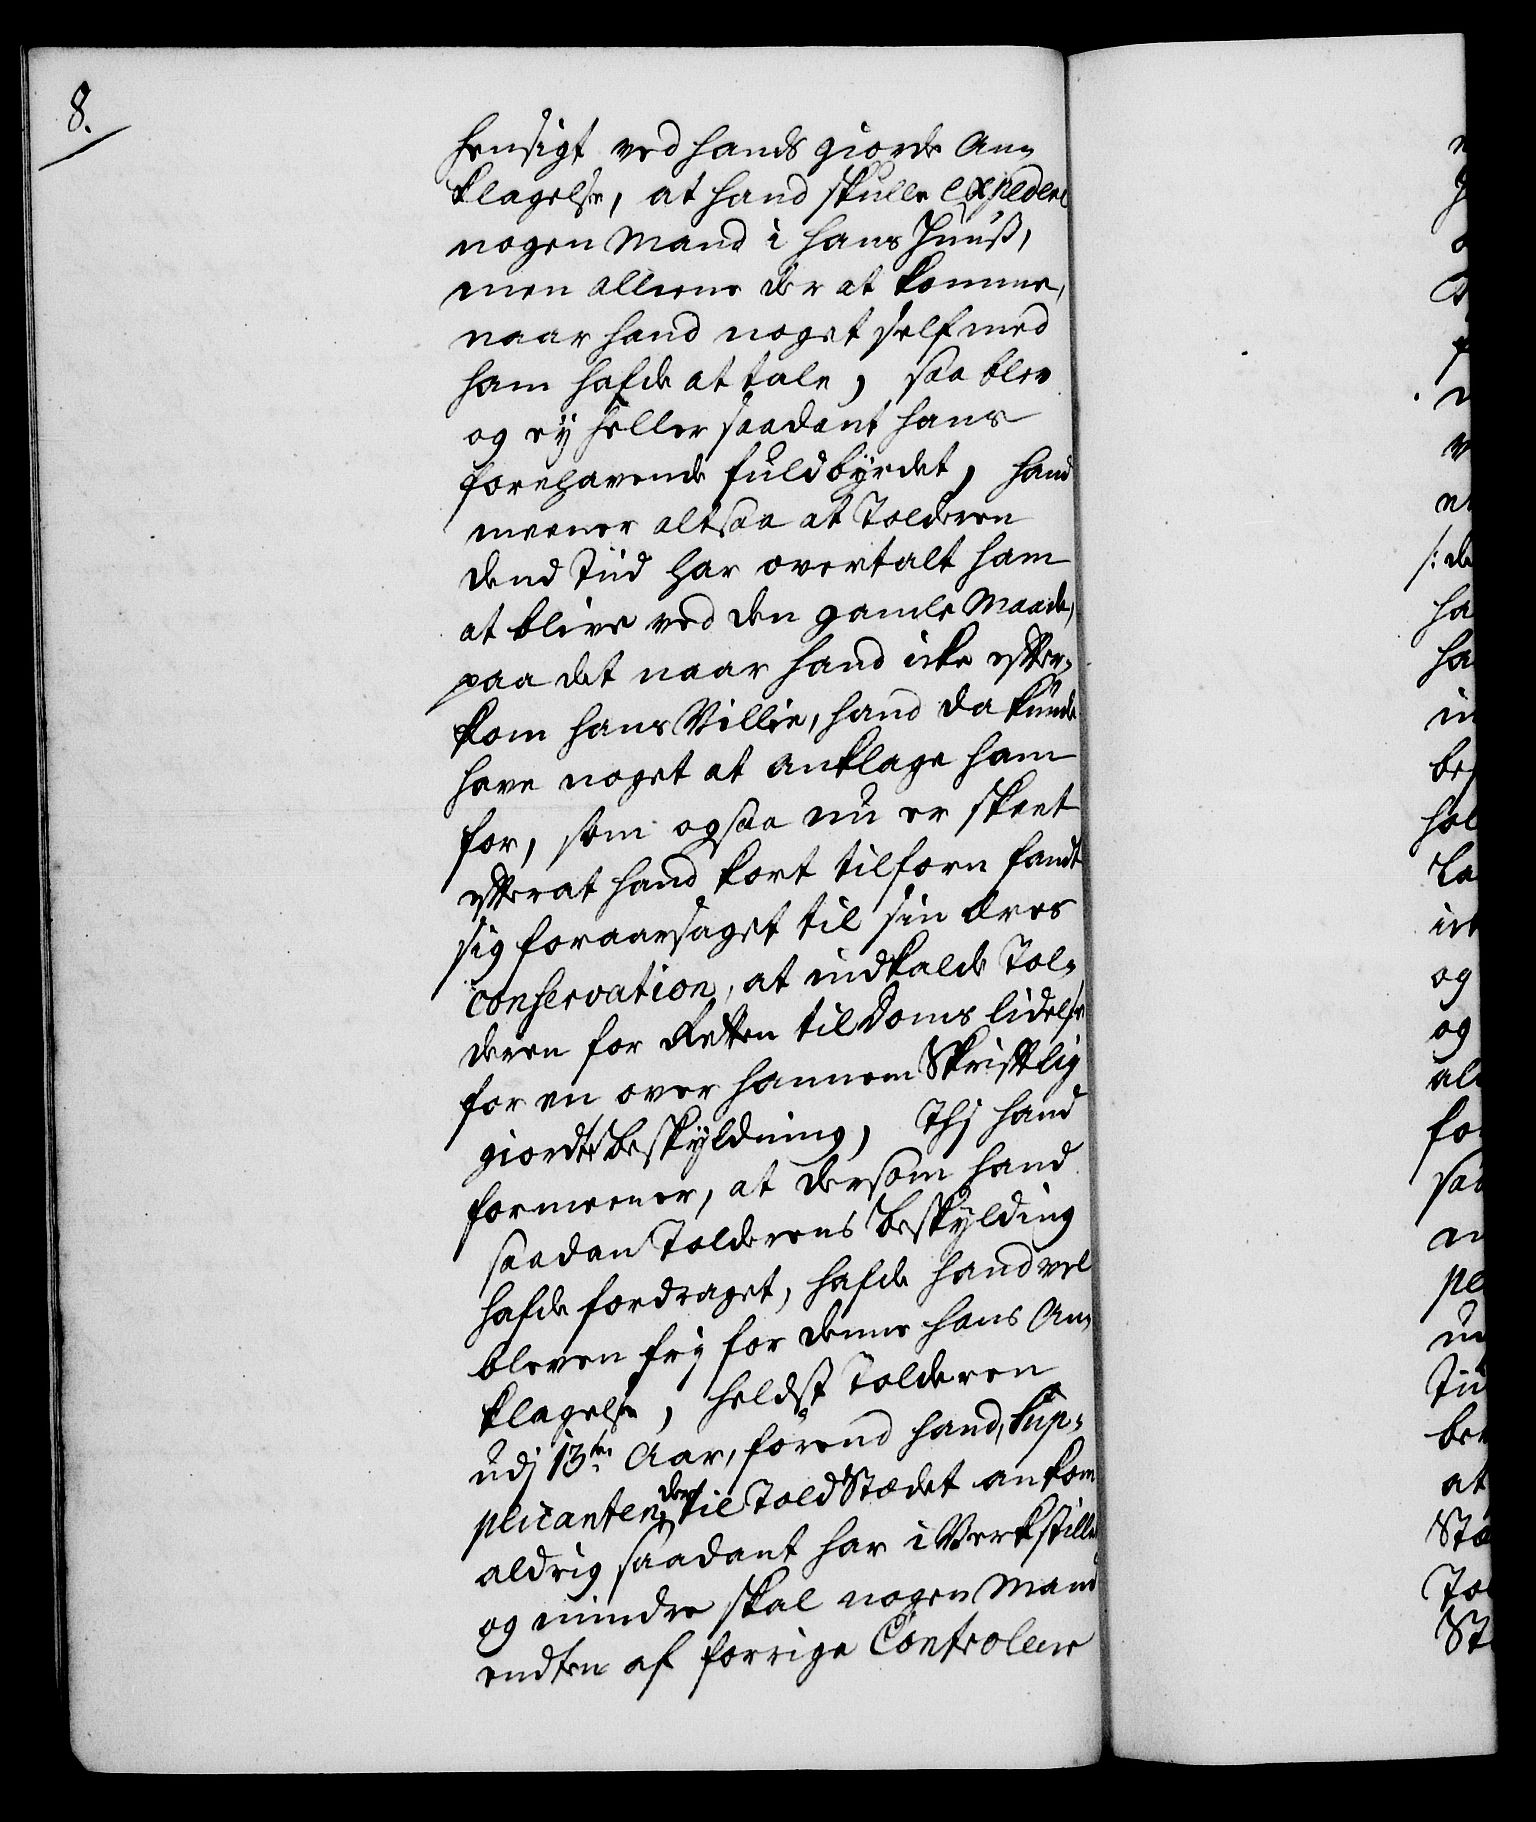 8.
hensigt ved hands giorde An„
klagelse, at hand skulle expedere
nogen Mand i hans Huuß,
men alleene der at komme,
naar hand noget self med
ham hafde at tale, saa blev
og ey heller saadant hans
forehavende fuldbyrdet, hand
meener altsaa at Tolderen
dend Tiid har overtalt ham
at blive ved den gamle Maade,
paa det naar hand icke efter„
kom hans Villie, hand da kunde
have noget at anklage ham
for, som ogsaa nu er skeet
efterat hand kort tilforn fandt
sig foraarsaget til sin æres
conservation, at indkalde Tol„
deren for Retten til Doms lidelse
for en over hannem Skriftlig
giordte Beskyldning, Thj hand
formeener, at dersom hand
saadan Tolderens Beskylding
hafde fordraget, hafde hand vel
bleven frj for denne hans An„
klagelse, heldst Tolderen
udj 13ten Aar, førend hand, Sup„
plicanten, der til Toldstædet ankom
aldrig saadant har i Verkstille
og mindre skal nogen Mand
endten af forrige Controleur
/: de
ha
ha
in
be
hol
Ta
og
og
al
fo
saa
pe
Tii
be
at
Stæ
Tol
St